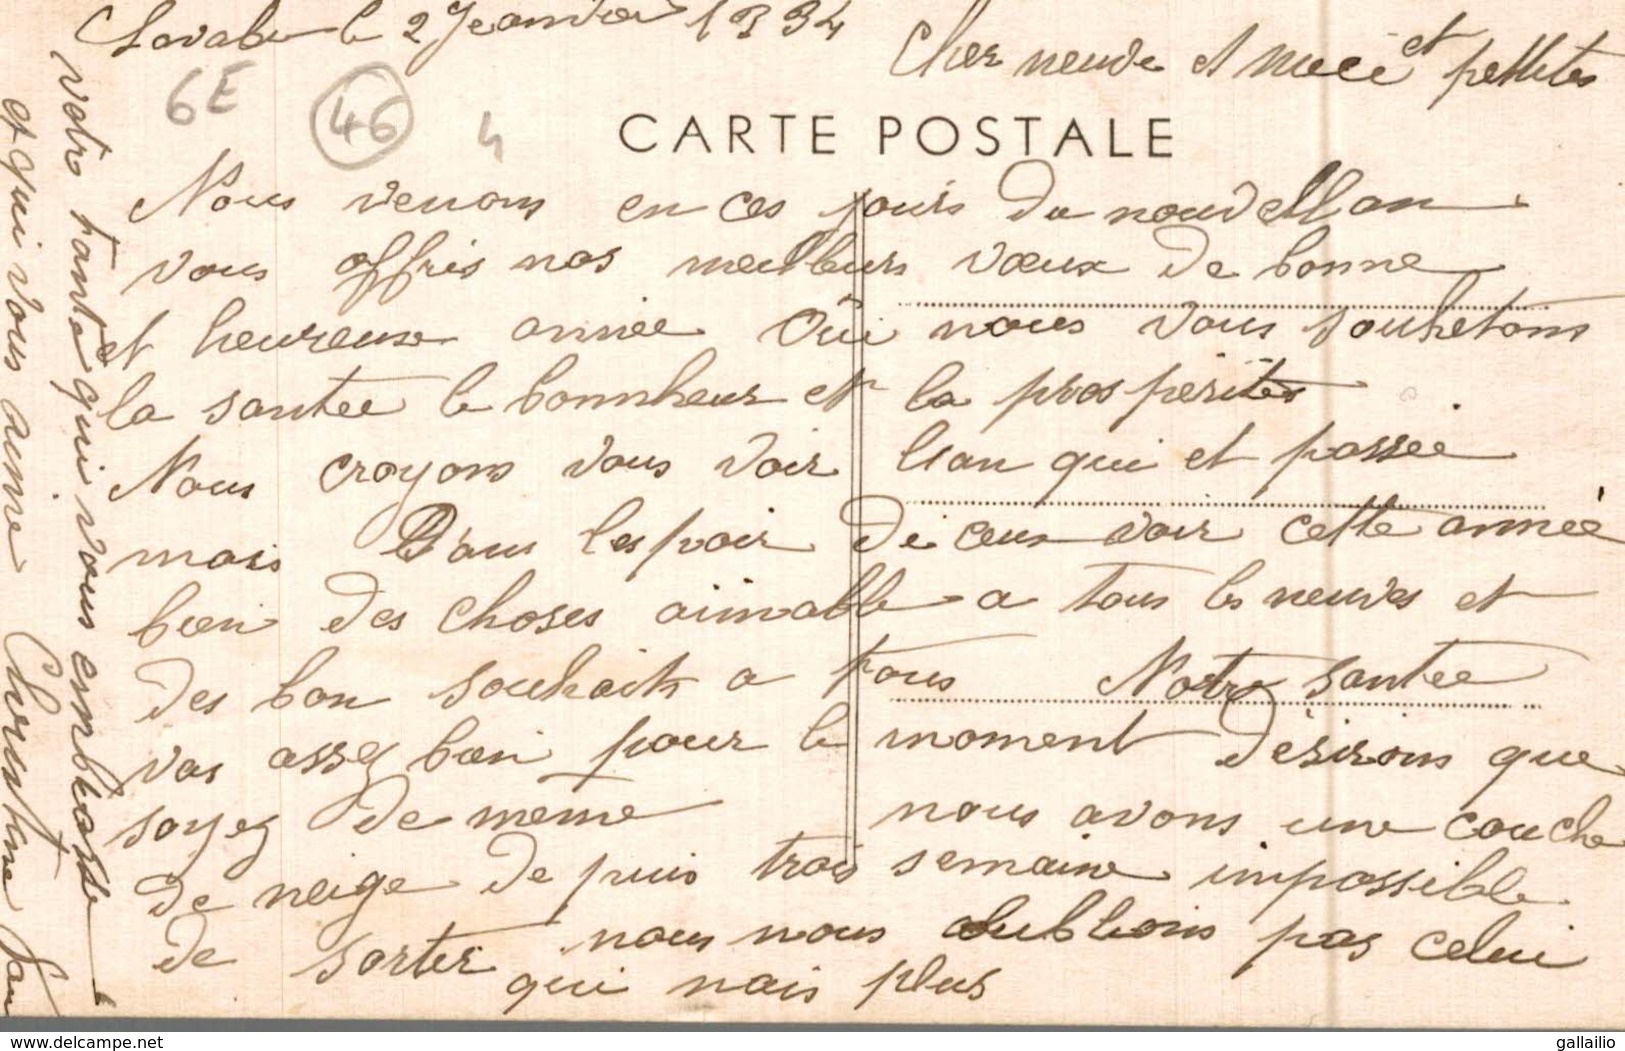 le 2 Jeanvier 1934
Cher neude et niece et pettites
6E
46
4
CARTE POSTALE
Nous venons en ces jours du nouvellan
vous offris nos meilleurs vœux de bonne
et heureuse année Oui nous vous souhetons
la santée le bonnheur et la prospérités
Nous croyons vous voir lean qui et passée
mais Dans lespoir de ceux voir cette année
bien des choses aimable a tous les neuves et
des bon souhaits a tous Notre santée
vas assez bien pour le moment Désirons que
soyez de meme nous avons une couche
de neige de puis trois semaine impossible
de sorter nous nous oublions pas celui
qui nais plus
votre tante qui vous embrasse
et qui vous aime Christine
www.delcampe.net
gallailio